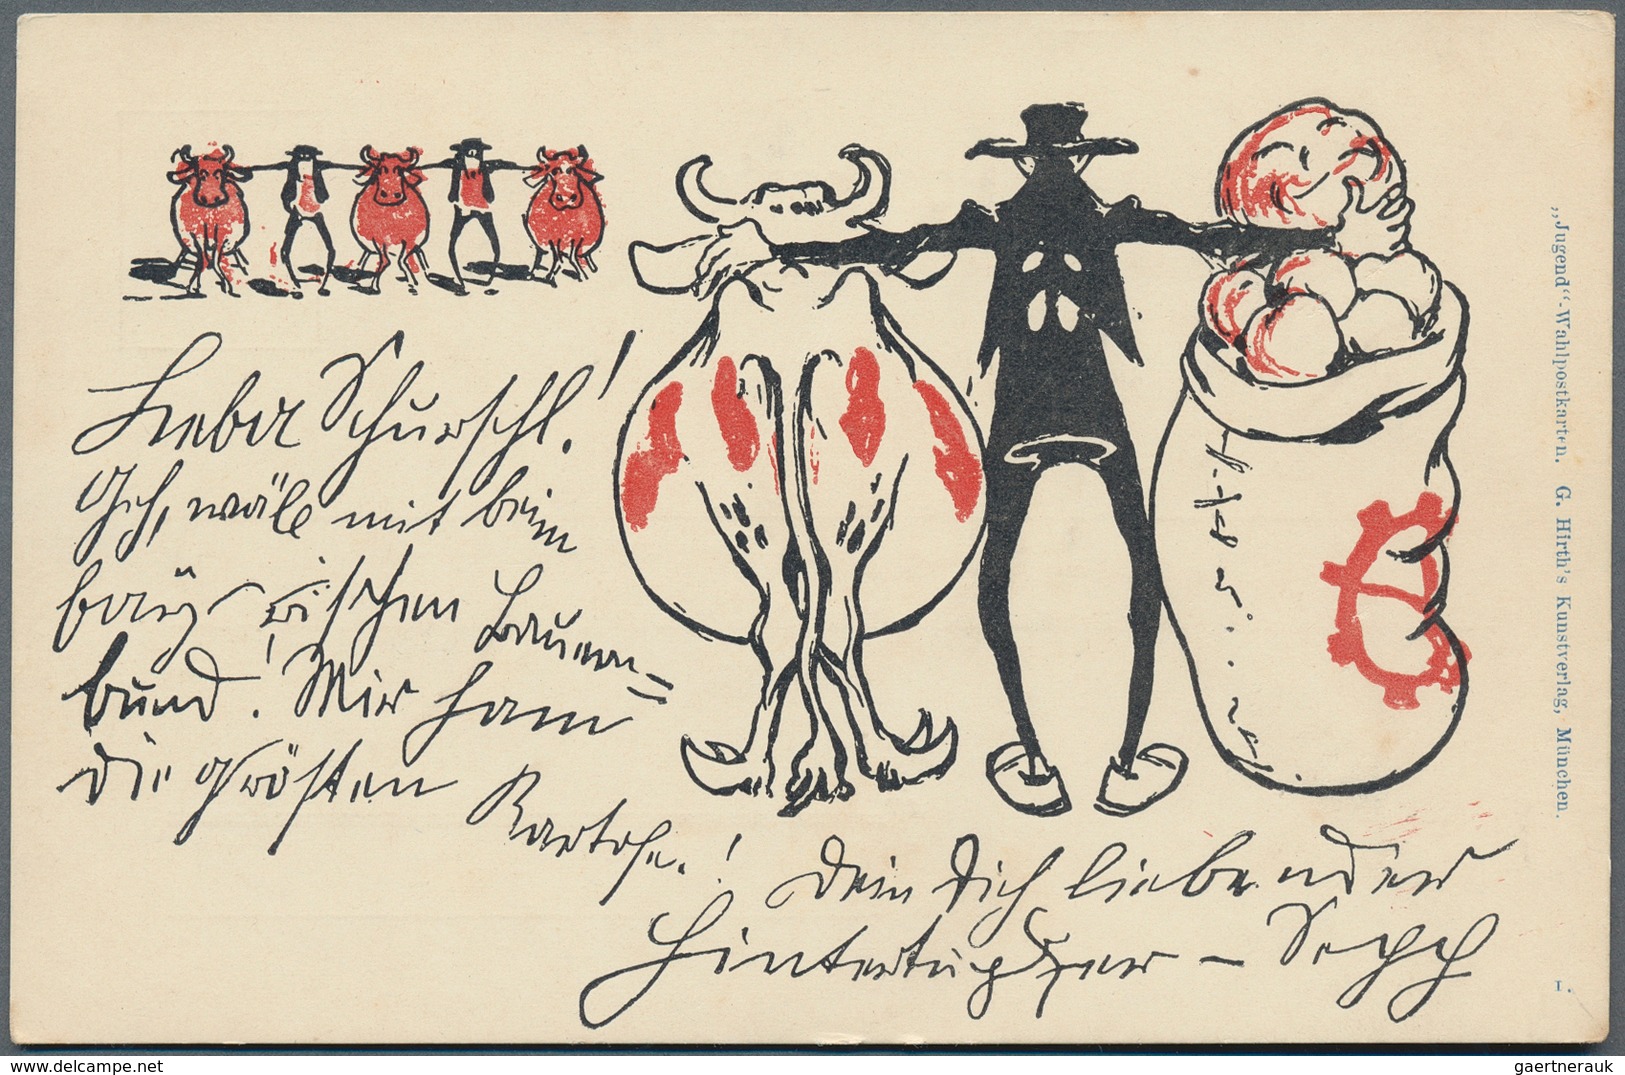 Lieber Schurschl!
Geh, wäle mit beim
bayrischen Bauern=
bund! Mir ham
die grösten
Kartofe.!
Dein Dich liebender
Hintertupfer – Sepp
„Jugend“-Wahlpostkarten. G. Hirth's Kunstverlag, München.
1.
gaertnerauk